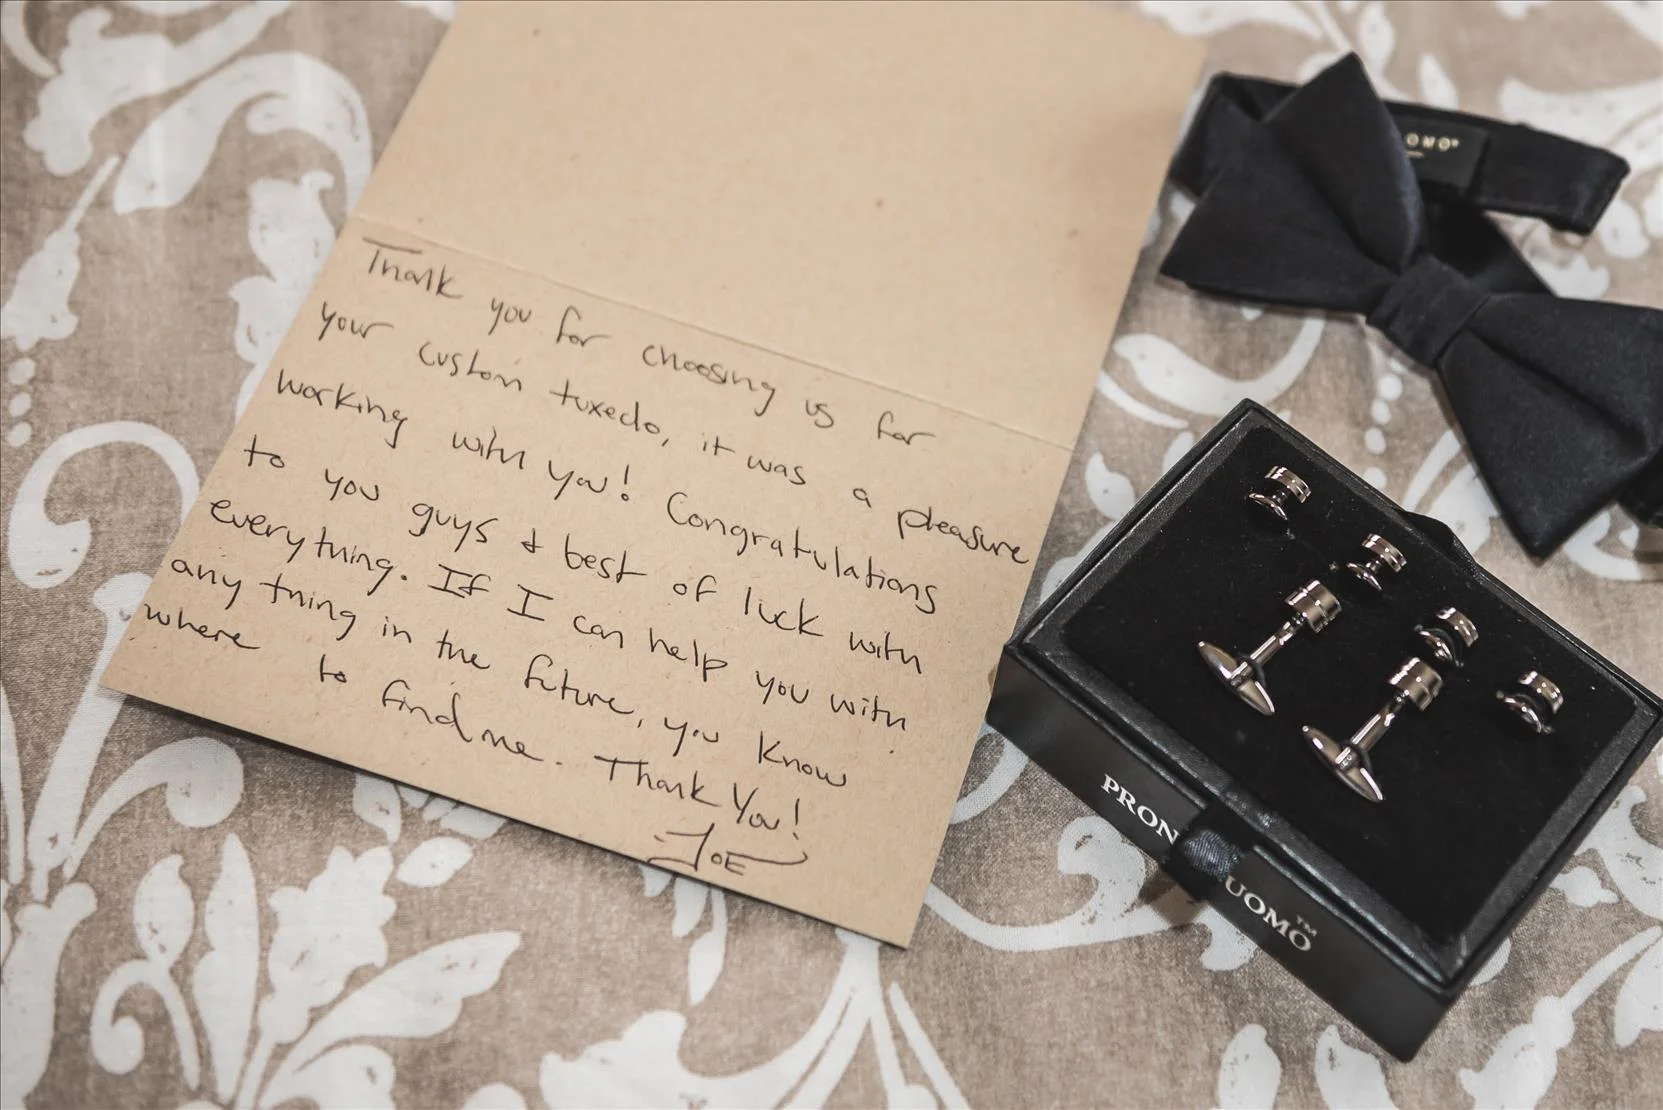 Thank you for choosing us for
your custom tuxedo, it was a pleasure
working with you! Congratulations
to you guys & best of luck with
everything. If I can help you with
any thing in the future, you know
where to find me. Thank You!
-JOE
OMO
PRON UOMO™